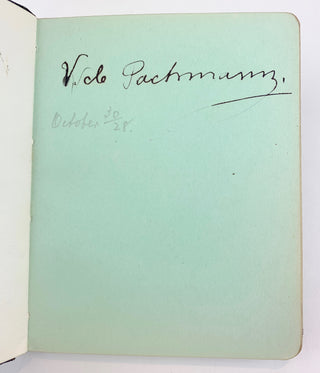 V de Pachmann.
October 30/28.